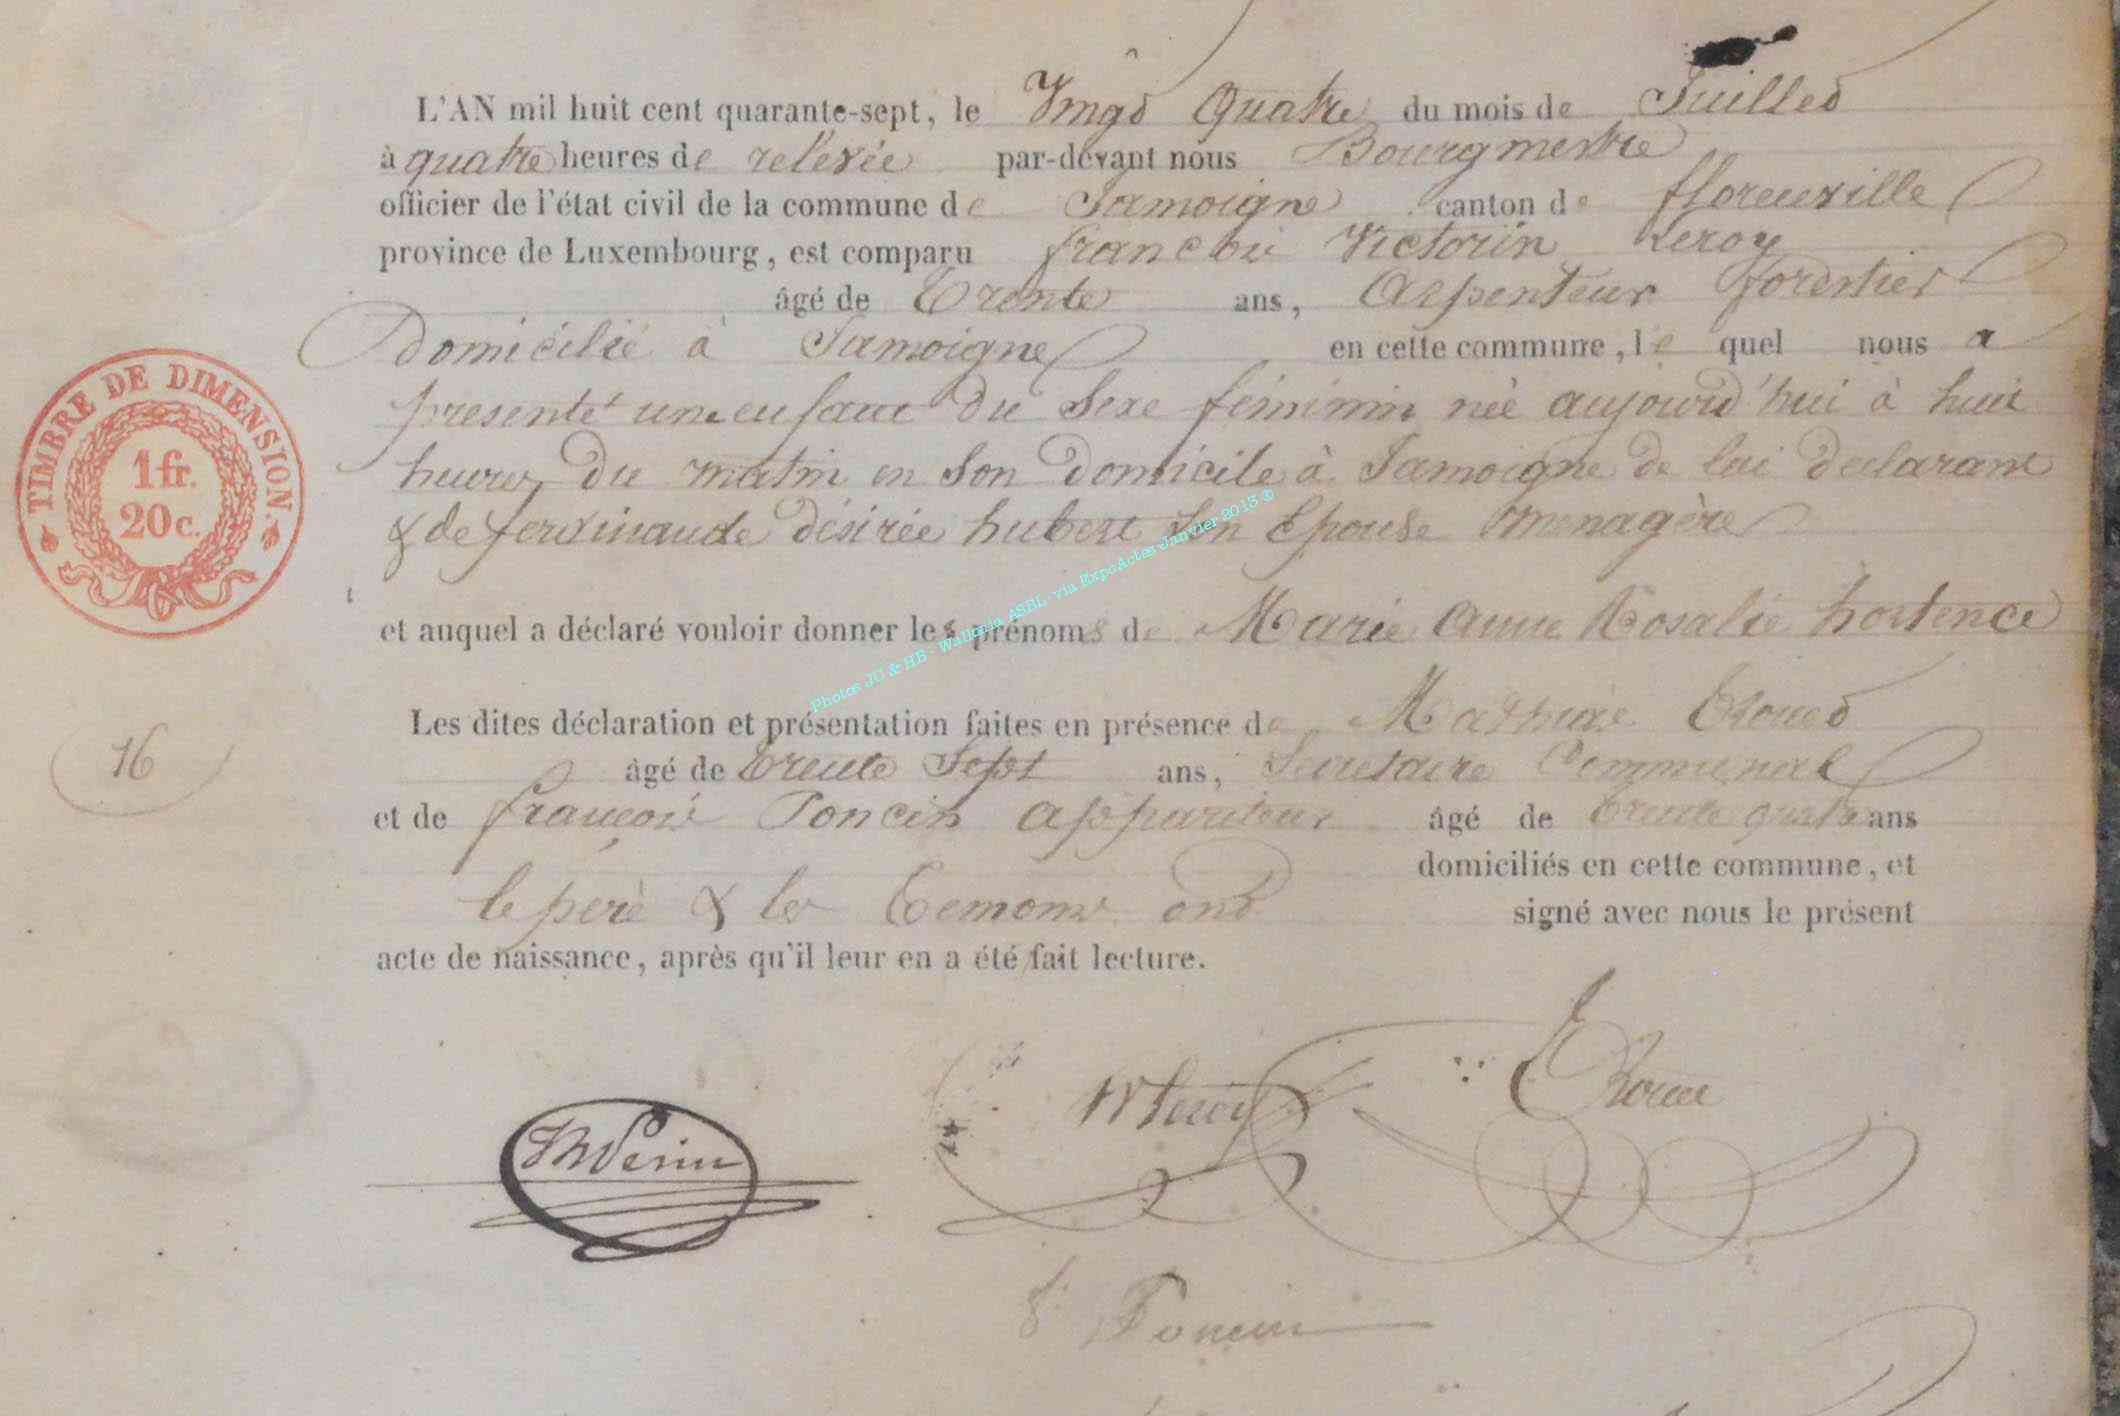 L'AN mil huit cent quarante-sept, le Vingt Quatre du mois de Juillet
à quatre heures de relevée par-devant nous Bourgmestre
officier de l'état civil de la commune de Jamoigne canton de florenville
province de Luxembourg, est comparu francois Victorin Leroy
âgé de Trente ans, Arpenteur forestier
Domicilié à Jamoigne en cette commune, le quel nous a
presenté une enfant du Sexe féminin née aujourd'hui à huit
heures du matin en Son Domicile à Jamoigne de lui declarant
& de ferdinande désirée hubert son Epouse menagère
et auquel a déclaré vouloir donner les prénoms de Marie Anne Rosalie hortence
Les dites déclaration et présentation faites en présence de
âgé de trente Sept ans, Secretaire Communal
et de françois Poncin appariteur âgé de trente quatre ans
domiciliés en cette commune, et
le père & les temoins ont signé avec nous le présent
acte de naissance, après qu'il leur en a été fait lecture.
TIMBRE DE DIMENSION.
1 fr.
20 c.
16
Photos JU & HB - Wallonia ASBL - via ExpoActes Janvier 2013 ©
Perin
Leroy
Poncin